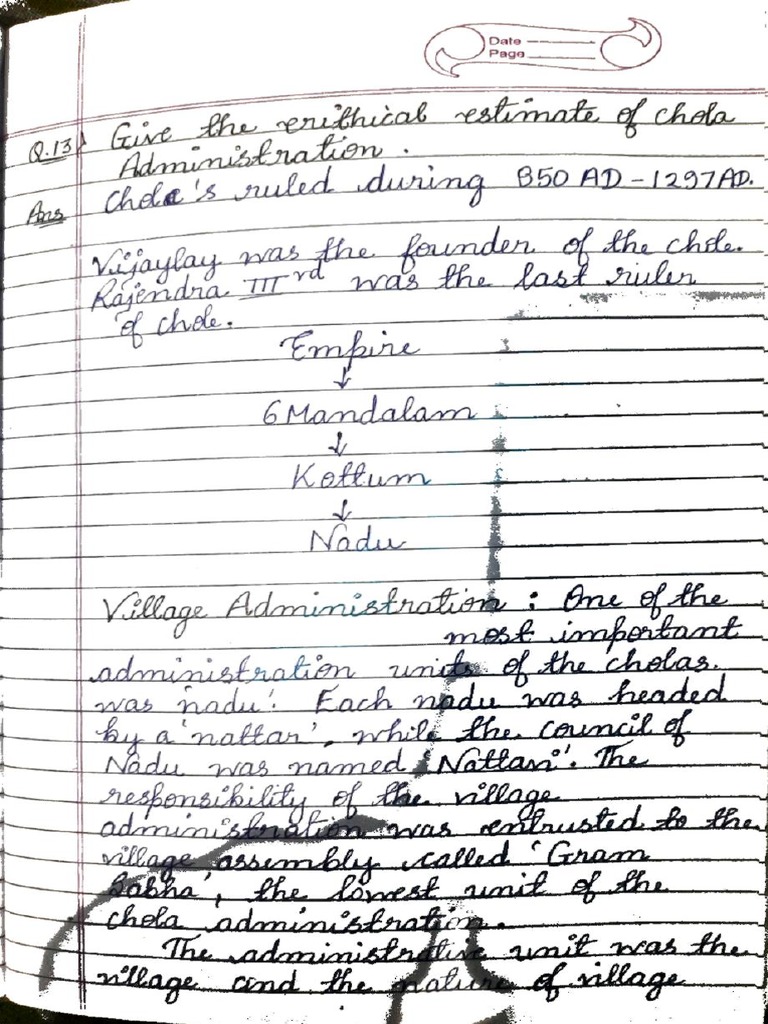 Date
Page
Q.13) Give the erithical estimate of chola
Administration.
Ans Chola's ruled during 850 AD - 1297 AD.
Vijaylay was the founder of the chole.
Rajendra IIIrd was the last ruler
of chole.
Empire
↓
6 Mandalam
↓
Kottum
↓
Nadu
Village Administration : One of the
most important
administration units of the cholas.
was 'nadu'. Each nadu was headed
by a 'nattar', while the council of
Nadu was named 'Nattavi'. The
responsibility of the village
administration was entrusted to the
village assembly called 'Gram
Sabha', the lowest unit of the
chola administration.
The administrative unit was the
village and the nature of village